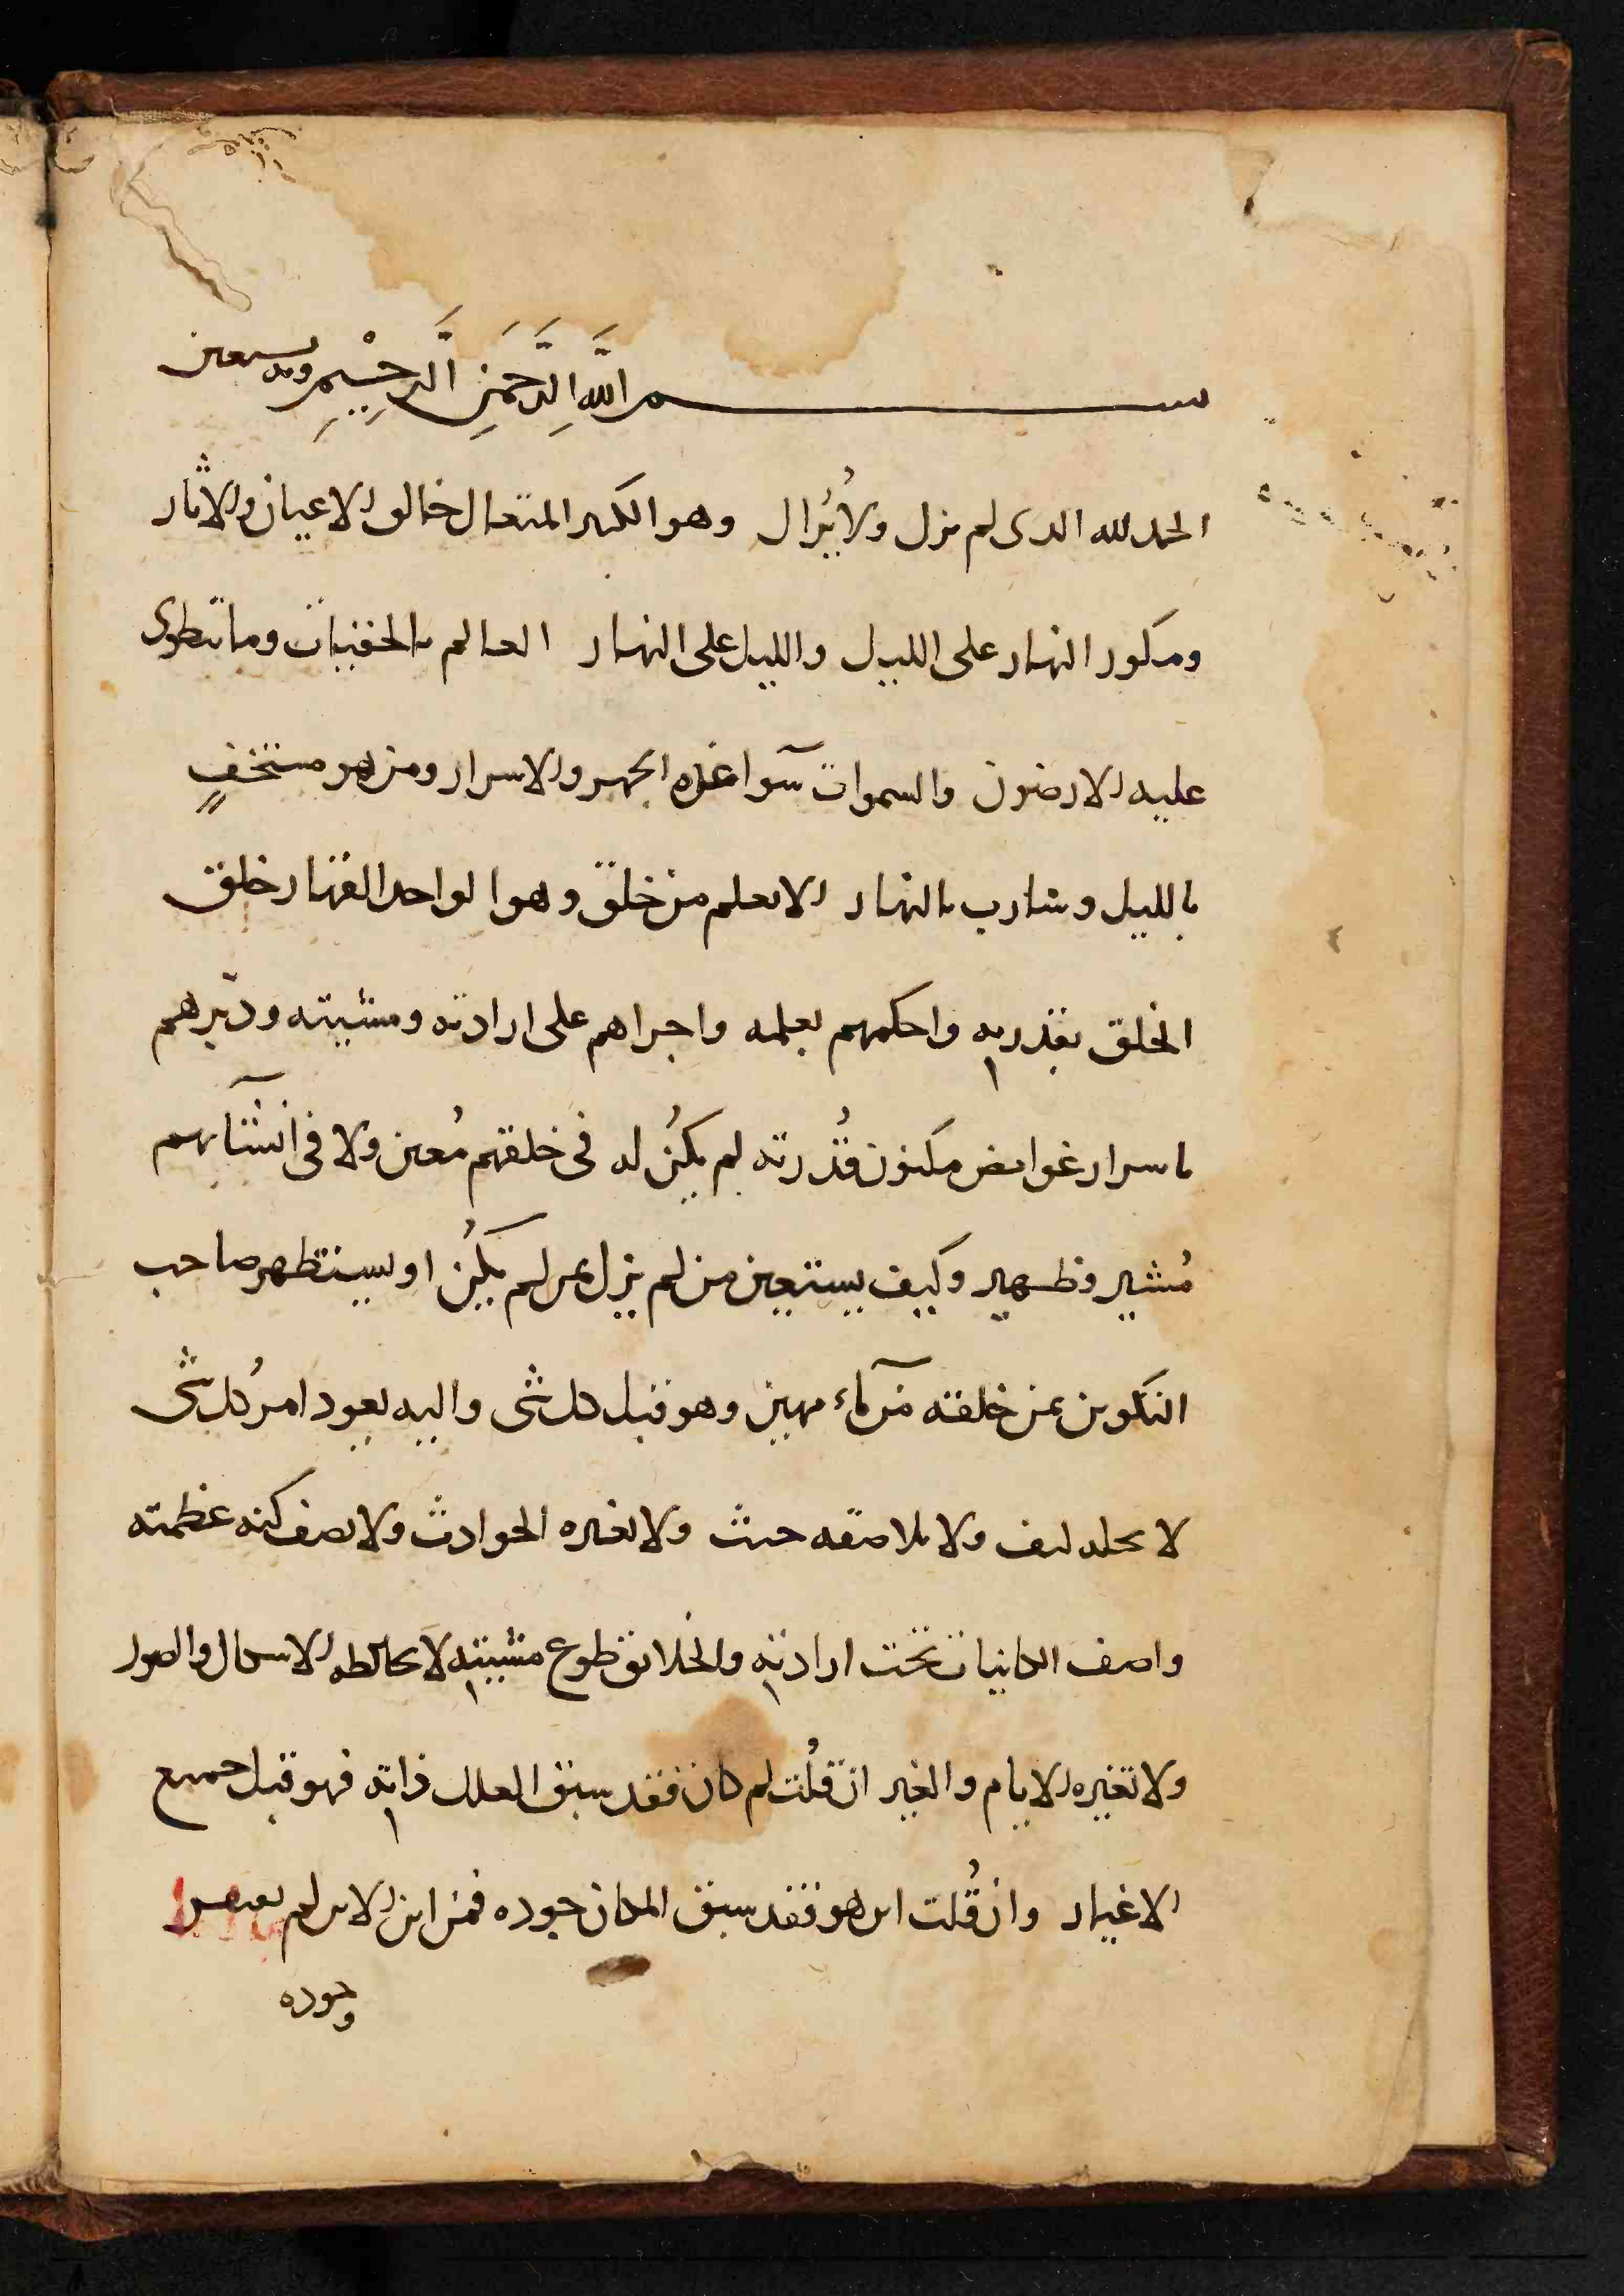 بسم اللَّه الرَّحمَنِ الرَّحِيْمِ وبه نستعين
الحمد لله الذى لم يزل ولا يُزال وهو الكبير المتعال خالق الاعيان والاثار
ومكور النهار على الليل والليل على النهار العالم بالخفيات وما تنطوى
عليه الارضون والسموات سوآ عنده الجهر والاسرار ومن هو مستخفٍ
بالليل وسارب بالنهار الا يعلم من خلق وهو الواحد القهار خلق
الخلق بقدرته واحكمهم بعلمه واجراهم على ارادته ومشيته ودبّرهم
باسرار غوامض مكنون قُدرته لم يكنُ له فى خلقهم مُعين ولا فى انشآيهم
مُشير وظهير وكيف يستعين من لم يزل بمن لم يكنُ او يستظهر صاحب
التكوين بمن خلقه من مآء مهين وهو قبل كل شى واليه يعود امرُ كل شى
لا كيف ولا حيث ولا تغيره الحوادث ولا يصف كنه عظمته
واصف الكاينات تحت ارادته والخلايق طوع مشيته لا تخالطه الاشكال والصور
ولا تغيره الايام والغير ان قُلت لم كان فقد سبق العلل ذاته فهو قبل جميع
الاغيار وان قُلت اين هو فقد سبق المكان جوده فمن اين الاين لم
وجوده